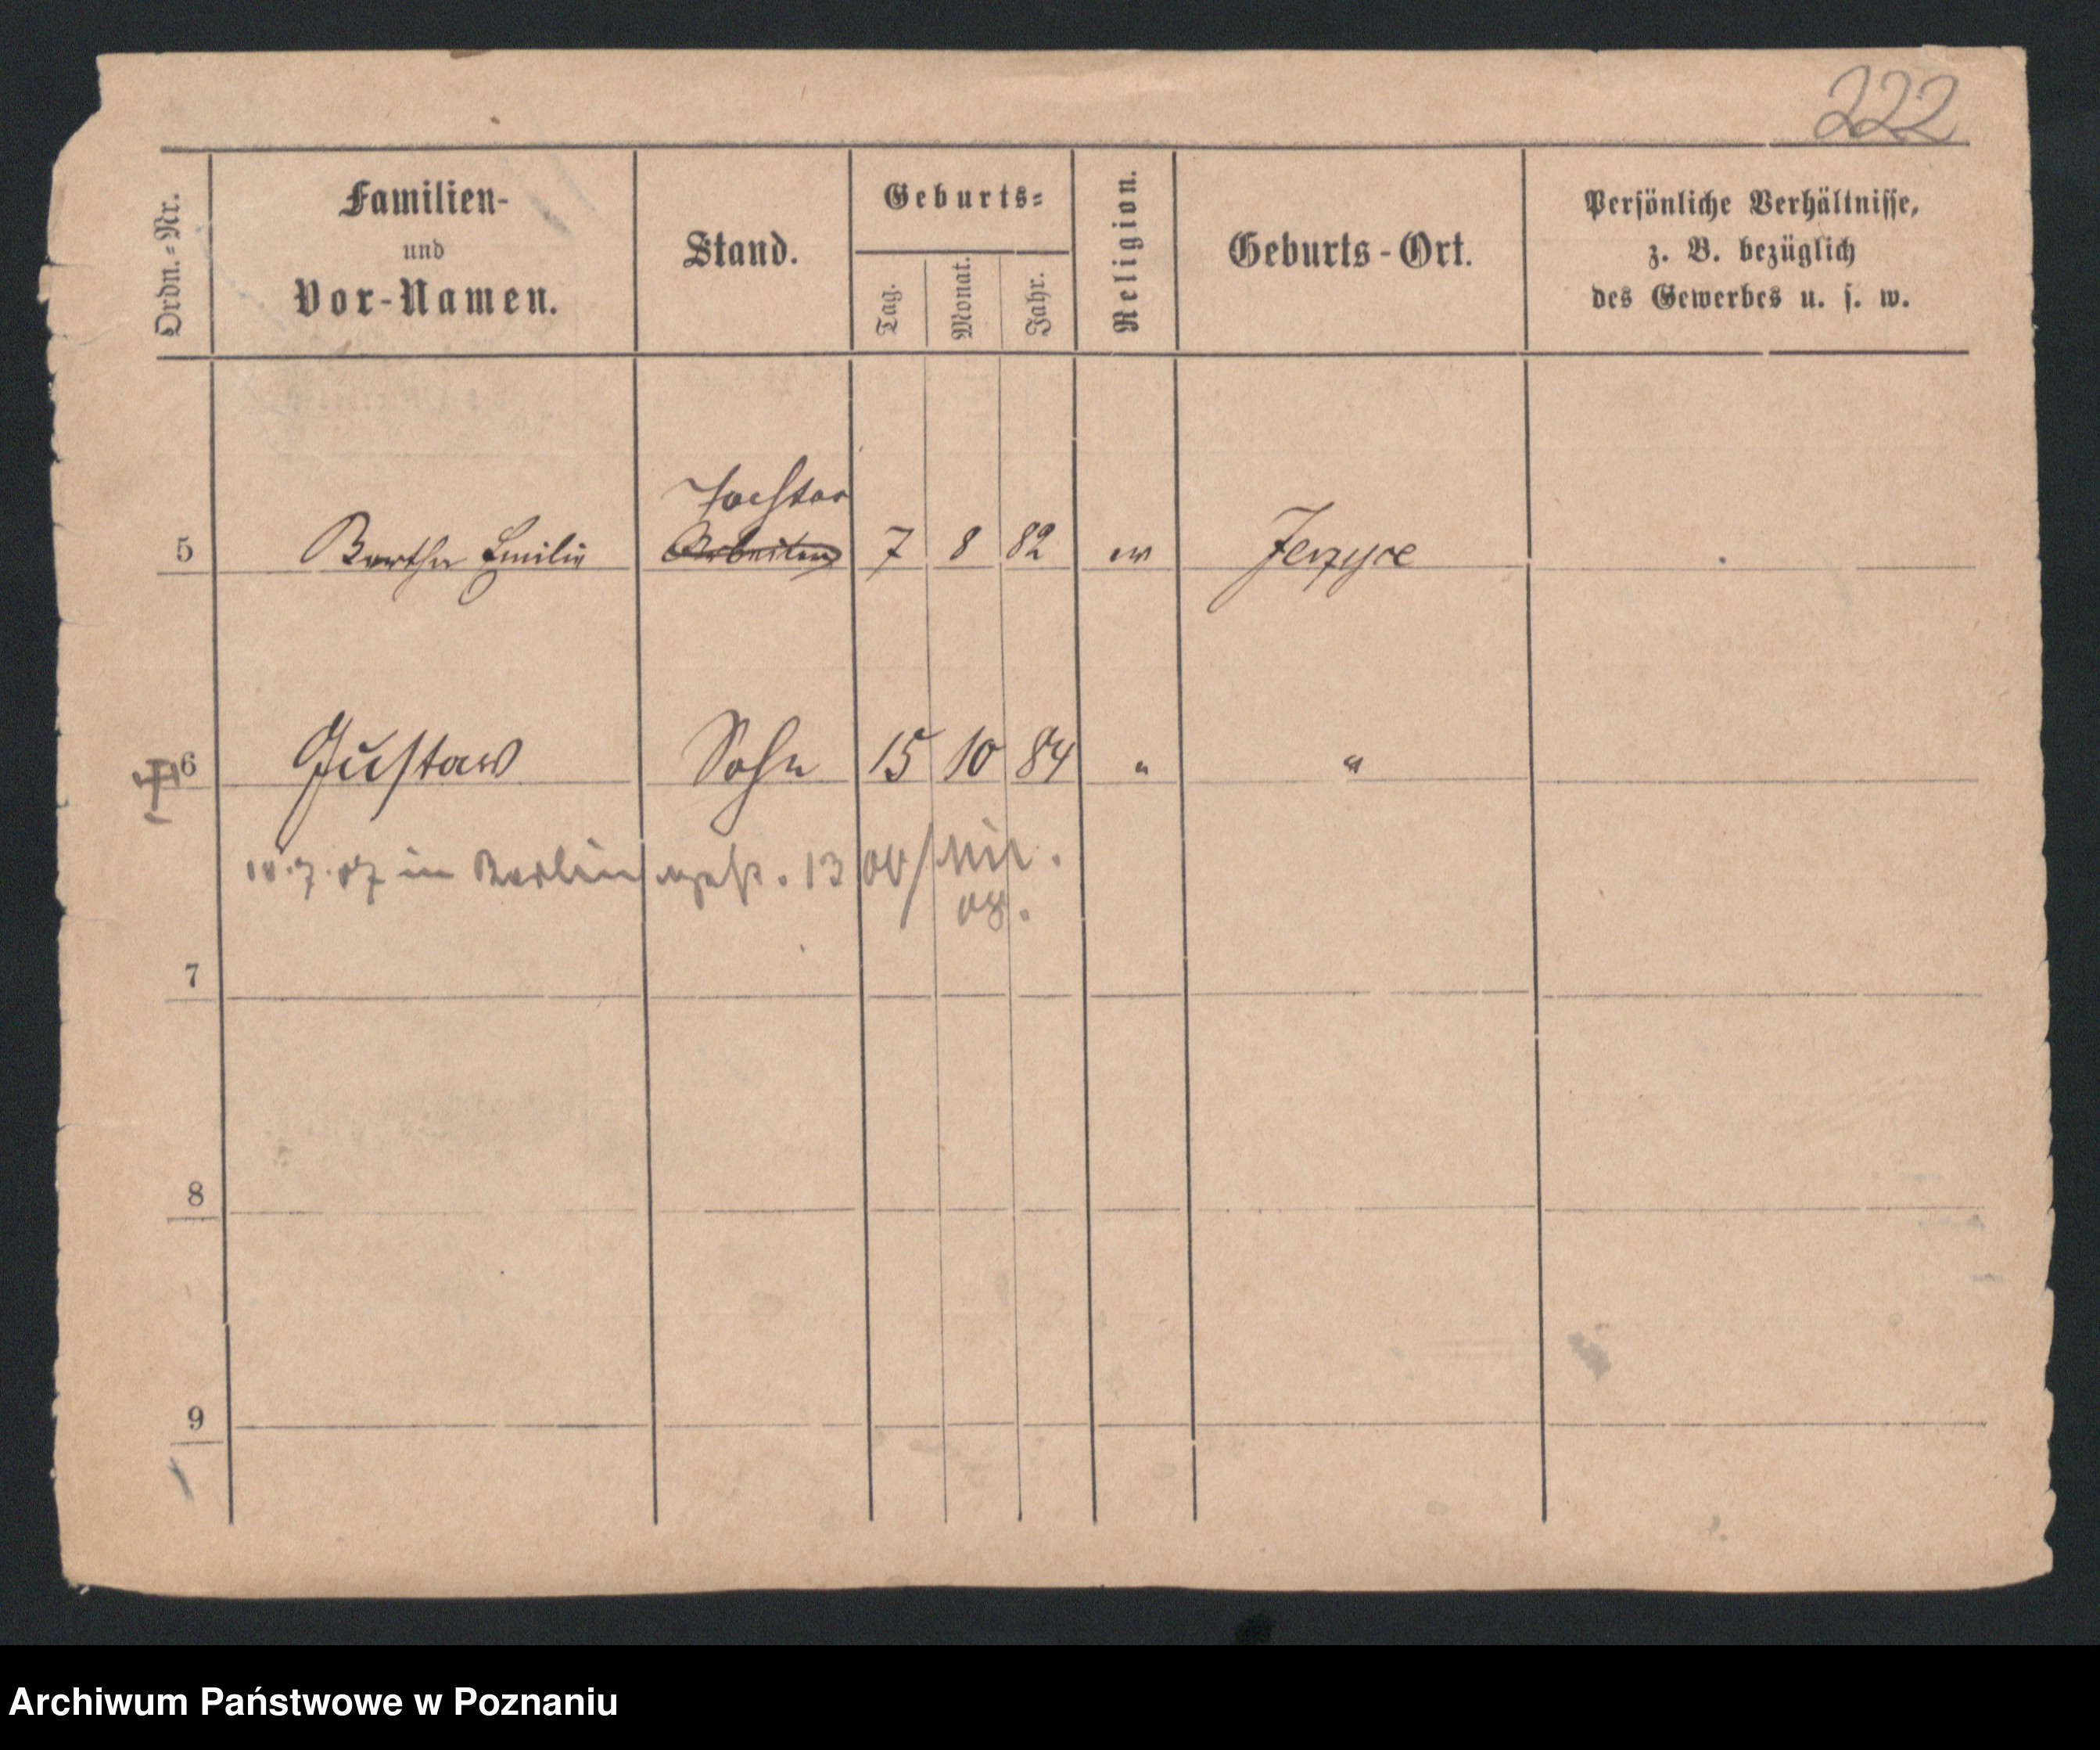 222
Ordn.-Nr.
Familien-
und
Vor-Namen.
Stand.
Geburts-
Tag.
Monat.
Jahr.
Religion.
Geburts-Ort.
Persönliche Verhältnisse,
z. B. bezüglich
des Gewerbes u. s. w.
Tochter
5 Bertha Emilie Arbeiter 7 8 82 ew Jerzyce
6 Gustaw Sohn 15 10 84 " "
7.07 in Berlin gest. 13
08.
7
8
9
Archiwum Państwowe w Poznaniu